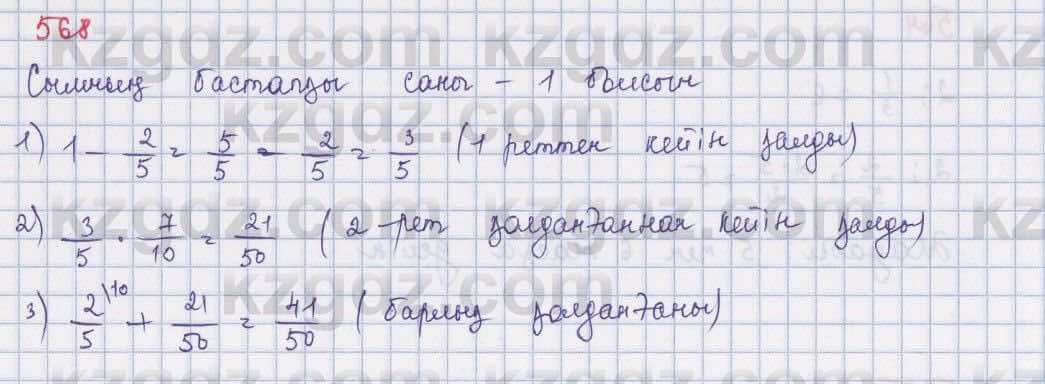 568
Сымның бастапқы саны - 1 болсын
1) 1 - 2/5 = 5/5 - 2/5 = 3/5 (1 реттен кейін қалды)
2) 3/5 · 7/10 = 21/50 (2-рет қолданғаннан кейін қалды)
3) 2/5 \10 + 21/50 = 41/50 (барлық қолданғаны)
kzgdz.com